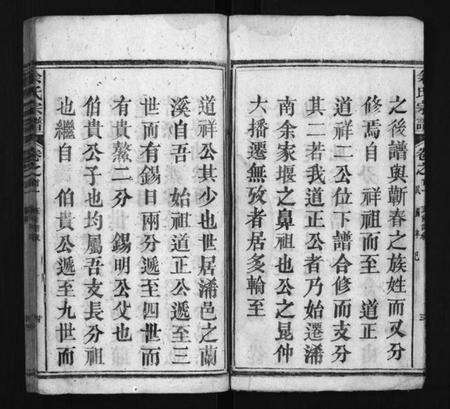 之後譜與蘄春之族姓而又分
修焉自 祥祖而至 道正
道祥二公位下譜合修而支分
其二若我道正公者乃始遷浠
南余家堰之鼻祖也公之昆仲
大播遷無攷者居多輪至
道祥公其少也世居浠邑之蘭
溪自吾 始祖道正公遞至三
世而有錫日兩分遞至四世而
有貴鰲二分 錫明公父也
伯貴公子也均屬吾支長分祖
也繼自 伯貴公遞至九世而